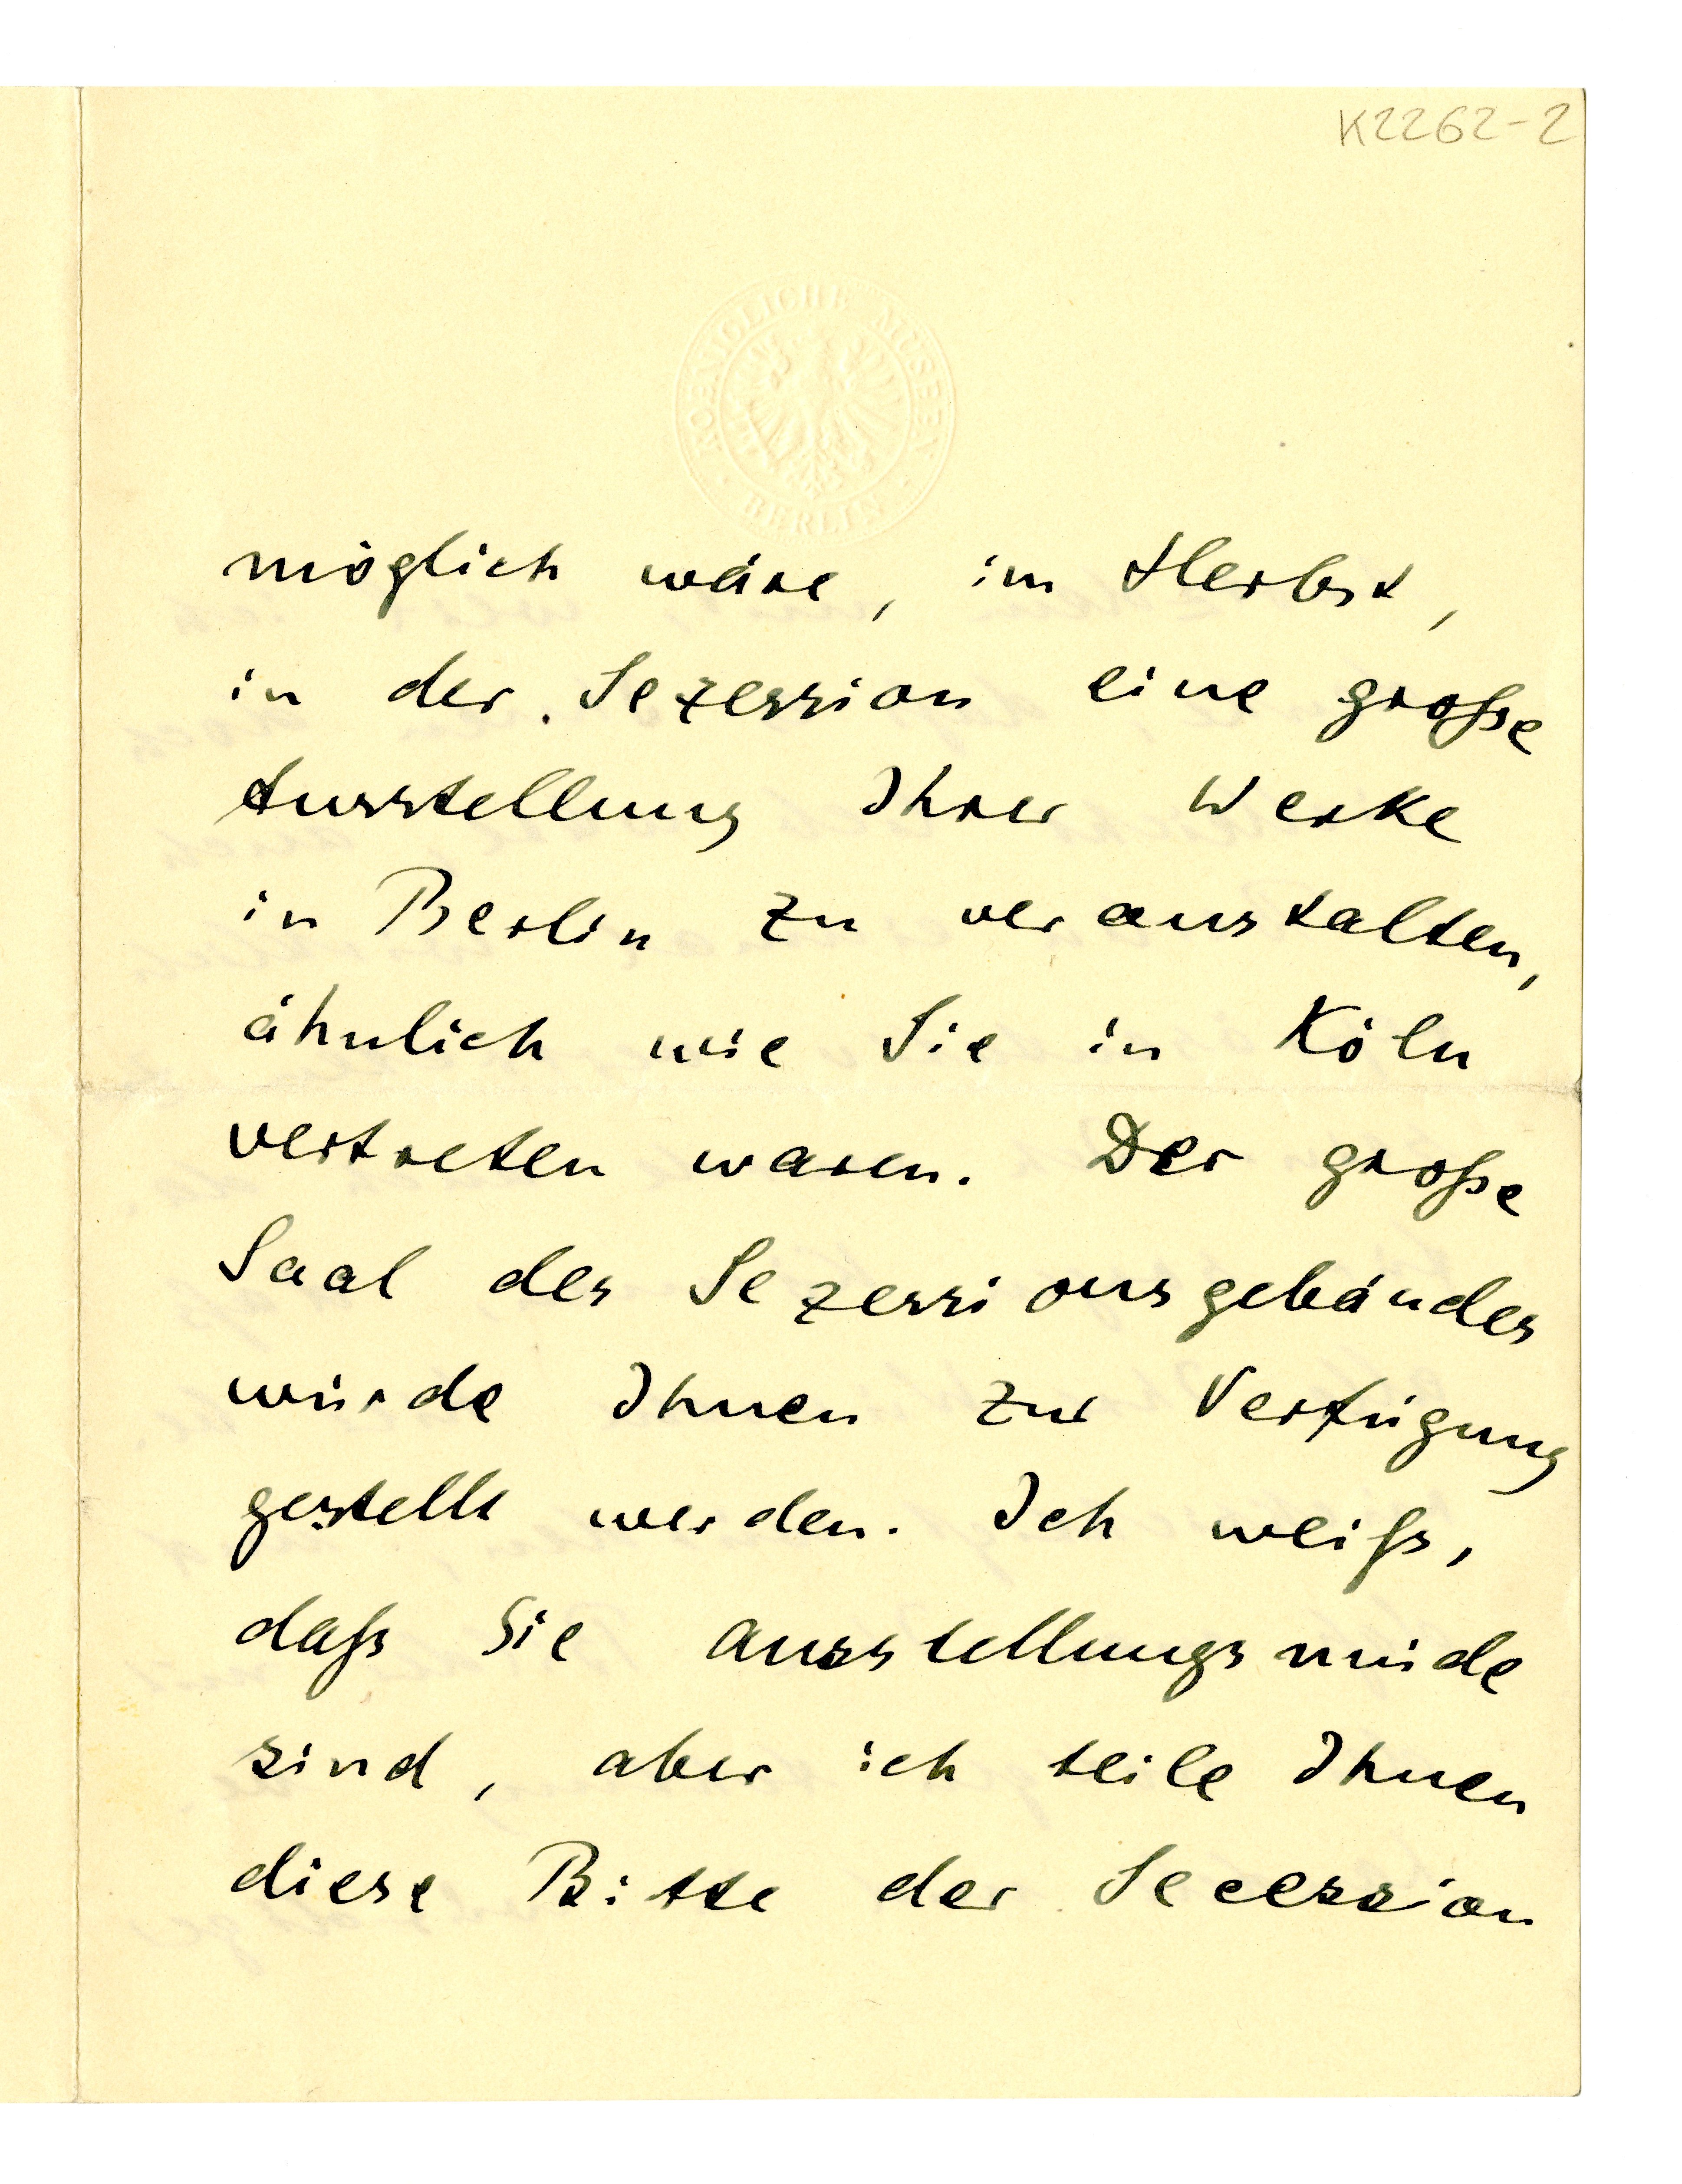 K2262-2
KOENIGLICHE MUSEEN
BERLIN
möglich wäre, im Herbst,
in der Sezession eine große
Ausstellung Ihrer Werke
in Berlin zu veranstalten,
ähnlich wie Sie in Köln
vertreten waren. Der große
Saal des Sezessionsgebäudes
würde Ihnen zur Verfügung
gestellt werden. Ich weiß,
daß Sie ausstellungsmüde
sind, aber ich teile Ihnen
diese Bitte der Secession